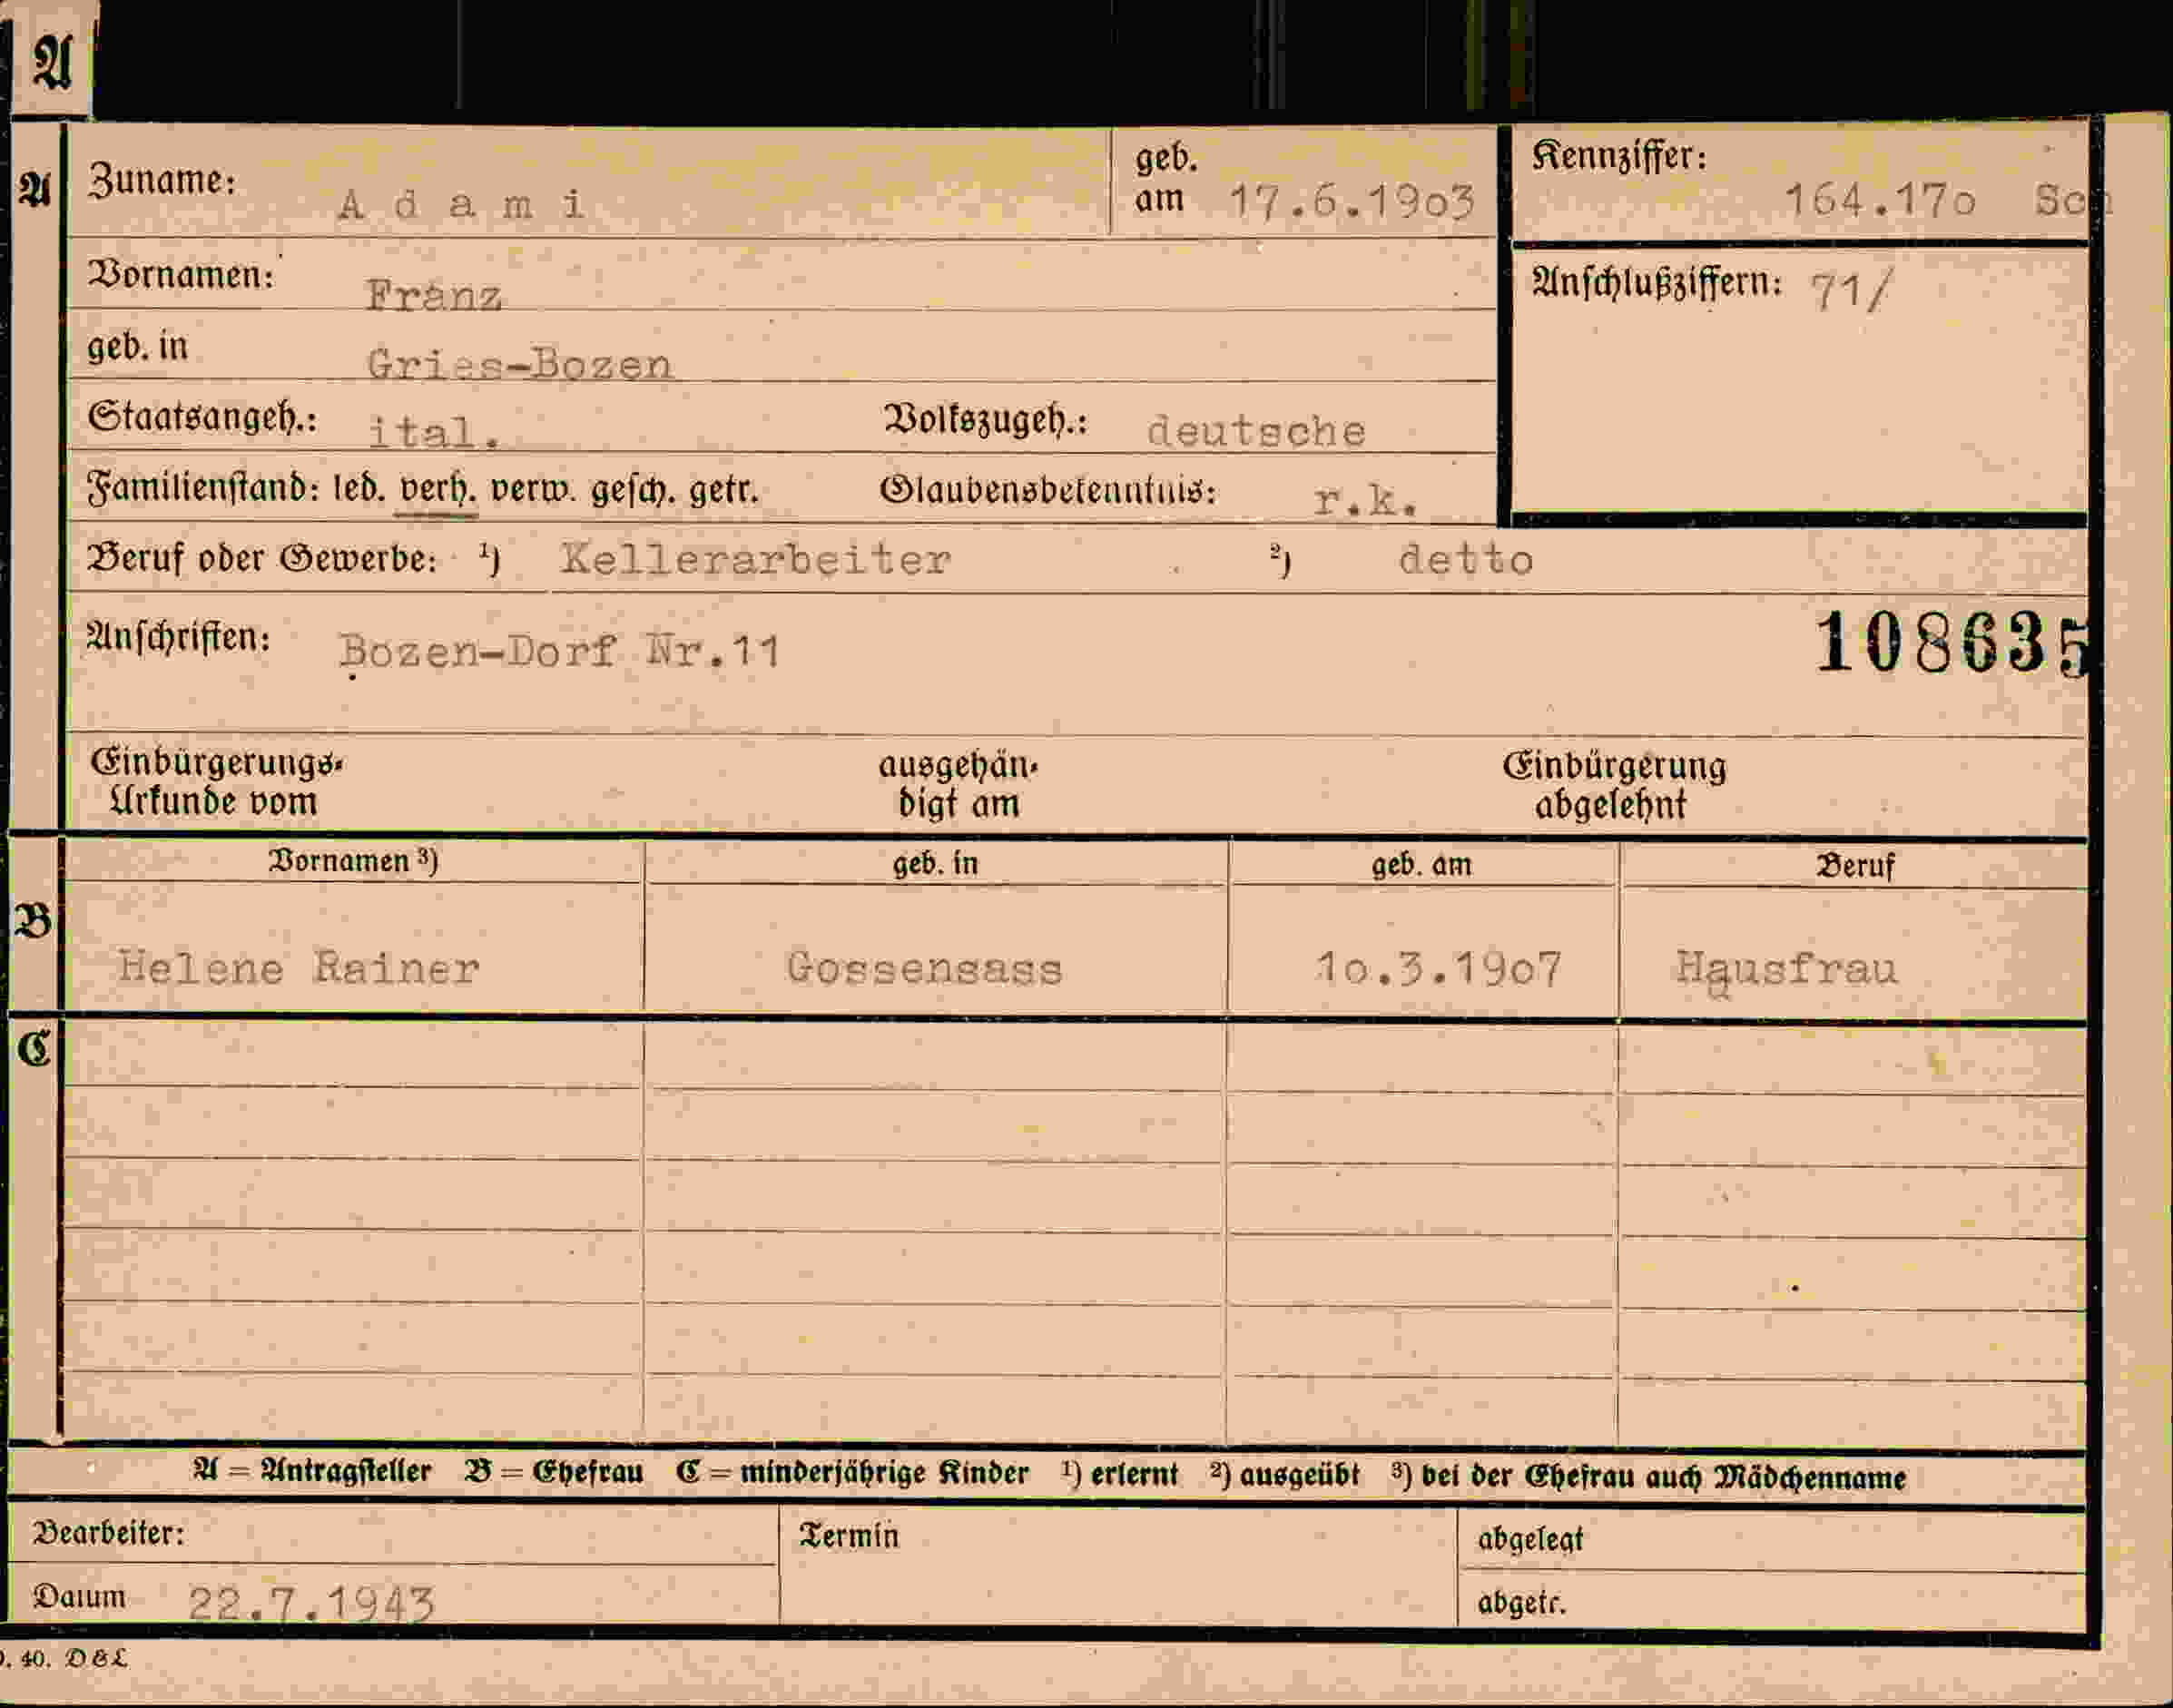 A
A Zuname: A d a m i geb. am 17.6.19o3 Kennziffer: 164.17o Sch
Vornamen: Franz Anschlußziffern: 71/
geb. in Gries-Bozen
Staatsangeh.: ital. Volkszugeh.: deutsche
Familienstand: led. verh. verw. gesch. getr. Glaubensbekenntnis: r.k.
Beruf oder Gewerbe: ¹) Kellerarbeiter ²) detto
Anschriften: Bozen-Dorf Nr.11 108635
Einbürgerungs- ausgehän- Einbürgerung
Urkunde vom digt am abgelehnt
Vornamen ³) geb. in geb. am Beruf
B Helene Rainer Gossensass 1o.3.19o7 Hausfrau
C
A = Antragsteller B = Ehefrau C = minderjährige Kinder ¹) erlernt ²) ausgeübt ³) bei der Ehefrau auch Mädchenname
Bearbeiter: Termin abgelegt
Datum 22.7.1943 abgetr.
40. D&L